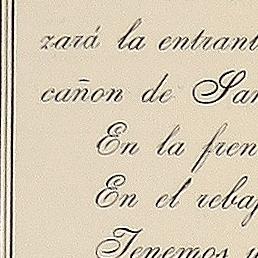 zará la entrant
cañon de San
En la fren
En el rebaj
Tenemos